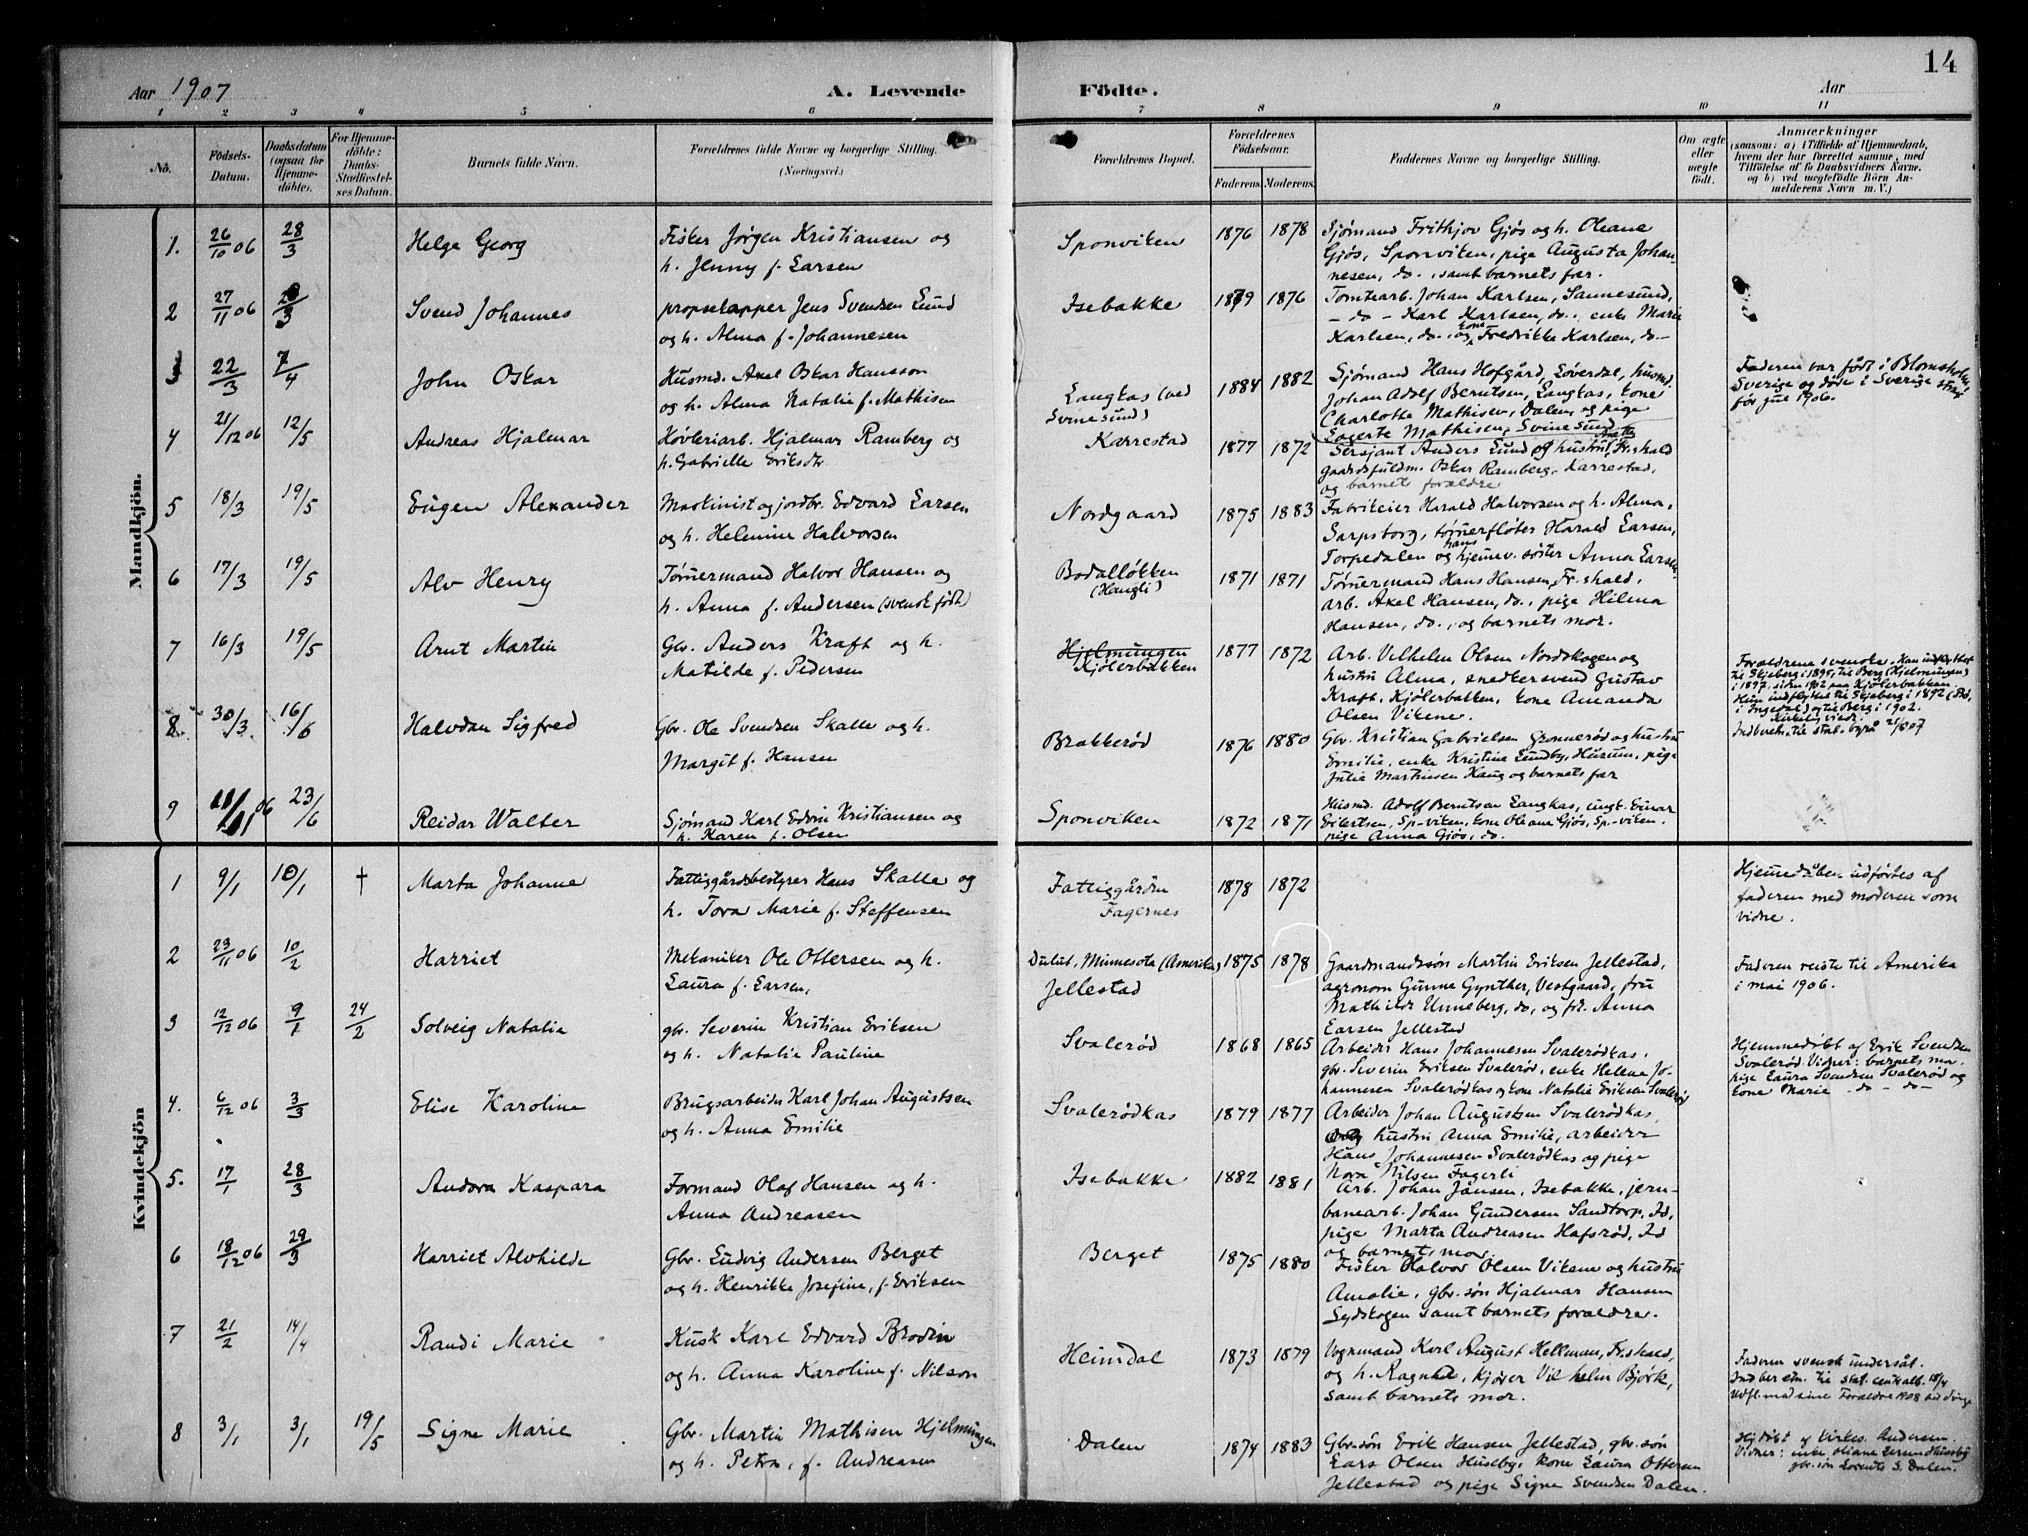 14
Aar 1907
A. Levende
Födte.
Aar
1 2 3 4 5 6 7 8 9 10 11
No.
Födsels-
Datum.
Daabsdatum
(ogsaa for
Hjemme-
döbte).
For Hjemme-
döbte:
Daabs-
Stadfæstel-
ses Datum.
Barnets fulde Navn.
Forældrenes fulde Navne og borgerlige Stilling.
(Næringsvei.)
Forældrenes Bopæl.
Forældrenes
Födselsaar.
Faderens. Moderens.
Faddernes Navne og borgerlige Stilling.
Om ægte
eller
uægte
födt.
Anmærkninger
(saasom: a) i Tilfælde af Hjemmedaab,
hvem der har forrettet samme, med
Tilföielse af to Daabsvidners Navne,
og b) ved uægtefödte Börn An-
melderens Navn m. V.)
Mandkjön.
1. 26/10 06 28/3 Helge Georg
Fisker Jørgen Kristiansen og
h. Jenny f. Larsen
Sponviken 1876 1878
Sjømand Frithjov Gjøs og h. Oleane
Gjøs, Sponviken, pige Augusta Johan-
nesen, do., samt barnets far.
2 27/11 06 28/3 Svend Johannes
propskapper Jens Svendsen Lund
og h. Alma f. Johannesen
Isebakke 1879 1876
Tomtearb. Johan Karlsen, Sannesund,
- do - Karl Karlsen, do., enke Marie
Karlsen, do., og kone Fredrikke Karlsen, do -
3 22/3 7/4 John Oskar
Husmd. Axel Oskar Hansson
og h. Alma Natalie f. Mathisen
Langkas (ved
Svinesund)
1884 1882
Sjømand Hans Hofgård, Løverdal, husmd.
Johan Adolf Berntsen, Langkas, kone
Charlotte Mathisen, Dalen, og pige
Lagerte Mathisen, Svinesund
Faderen var født i Blomsholm,
Sverige og døde i Sverige strax
før jul 1906.
4 21/12 06 12/5 Andreas Hjalmar
Høvleriarb. Hjalmar Ramberg og
h. Gabrielle Eriksdtr
Karrestad 1877 1872
Sersjant Anders Lund og hustru, Fr.shald
gaardsfuldm. Oskar Ramberg, Karrestad,
og barnets forældre
5 18/3 19/5 Eugen Alexander
Maskinist og jordbr. Edvard Larsen
og h. Helmine Halvorsen
Nordgaard 1875 1883
Fabrikeier Harald Halvorsen og h. Alma,
Sarpsborg, tømmerfløter Harald Larsen,
Torpedalen og hans hjemmev. søster Anna Larsen.
6 17/3 19/5 Alv Henry
Tømmermand Halvor Hansen og
h. Anna f. Andersen (svensk født)
Bodalløkken
(Haugli)
1871 1871
Tømmermand Hans Hansen, Fr.shald,
arb. Axel Hansen, do., pige Hilma
Hansen, do., og barnets mor.
7 16/3 19/5 Arnt Martin
Gbr. Anders Kraft og h.
Matilde f. Pedersen
Hjelmungen
Kjølerbakken
1877 1872
Arb. Vilhelm Olsen Nordskogen og
hustru Alma, snedkersvend Gustav
Kraft, Kjølerbakken, kone Amanda
Olsen Vikene.
Forældrene svenske. Han indflyttet
til Skjeberg i 1895, til Berg (Hjelmungen)
i 1897, siden 1902 paa Kjølerbakken.
Hun indflyttet til Skjeberg i 1892 (Bø,
i Ingedal) og til Berg i 1902.
Kirkelig viede.
Indberetn. til stat. byrå 21/5 07
8 30/3 16/6 Halvdan Sigfred
Gbr. Ole Svendsen Skalle og h.
Margit f. Hansen
Brakkerød 1876 1880
Gbr. Kristian Gabrielsen Grønnerød og hustru
Emilie, enke Kristine Lundby, Husum, pige
Julie Martinsen Haug og barnets far
9 11/11 06 23/6 Reidar Walter
Sjømand Karl Edvin Kristiansen og
h. Karen f. Olsen
Sponviken 1872 1871
Husmd. Adolf Berntsen Langkas, ungk. Einar
Eilertsen, Sp-viken, kone Oleane Gjøs, Sp-viken.
pige Anna Gjøs, do.
Kvindekjön
1 9/1 10/1 † Marta Johanne
Fattiggårdsbestyrer Hans Skalle og
h. Tora Marie f. Steffensen
Fattiggården
Fagernes
1878 1872
Hjemmedåben udførtes af
faderen med moderen som
vidne.
2 23/11 06 10/2 Harriet
Mekaniker Ole Ottersen og h.
Laura f. Larsen,
Dulut, Minnesota (Amerika)
Jellestad
1875 1878
Gaardmandssøn Martin Eriksen Jellestad,
agronom Gunne Gynther, Vestgaard, fru
Mathilde Unneberg, do, og frk. Anna
Larsen Jellestad
Faderen reiste til Amerika
i mai 1906.
3 12/12 06 9/1 24/2 Solveig Natalia
gbr. Severin Kristian Eriksen
og h. Natalie Pauline
Svalerød 1868 1865
Arbeider Hans Johannesen Svalerødkas,
gbr. Severin Eriksen Svalerød, enke Helene Jo-
hannesen Svalerødkas og kone Natalie Eriksen Svalerød
Hjemmedøbt af Erik Svendsen
Svalerød. Vidner: barnets mor
pige Laura Svendsen Svalerød og
kone Marie - do - do -
4. 6/12 06 3/3 Elise Karoline
Brugsarbeider Karl Johan Augustsen
og h. Anna Emilie
Svalerødkas 1879 1877
Arbeider Johan Augustsen Svalerødkas,
og hustru Anna Emilie, arbeider
Hans Johannesen Svalerødkas og pige
Nora Nilsen Fagerli
5. 17/1 28/3 Andora Kaspara
Formand Olaf Hansen og h.
Anna Andreasen
Isebakke 1882 1881
Arb. Johan Jansen, Isebakke, jern-
banearb. Johan Gundersen Sandtorp, Id,
pige Marta Andreasen Hafsrød, Id
og barnets mor.
6 18/12 06 29/3 Harriet Alvhilde
Gbr. Ludvig Andersen Berget
og h. Henrikke Josefine, f. Eriksen
Berget 1875 1880
Fisker Halvor Olsen Vikene og hustru
Amalie, gbr. søn Hjalmar Hansen
Sydskogen samt barnets forældre.
7 21/2 14/4 Randi Marie
Kusk Karl Edvard Brodin
og h. Anna Karoline f. Nilson
Heimdal 1873 1879
Vognmand Karl August Hellman, Fr.shald,
og h. Ragnhild, kjører Vilhelm Bjørk,
samt barnets mor.
Faderen svensk undersåt.
Indber etn. til stat. centralb. 18/4
Udfl. med sine Forældre 1908
8 3/1 3/1 19/5 Signe Marie
Gbr. Martin Mathisen Hjelmungen
og h. Petra, f. Andreasen
Dalen 1874 1883
Gbr. søn Erik Hansen Jellestad, gbr. søn
Lars Olsen Huseby, kone Laura Ottersen
Jellestad og pige Signe Svendsen Dalen.
Hj.døbt af kirkes. Andersen.
Vidner: enke Oliane Huseby
gbr. søn Lorents S. Dalen.